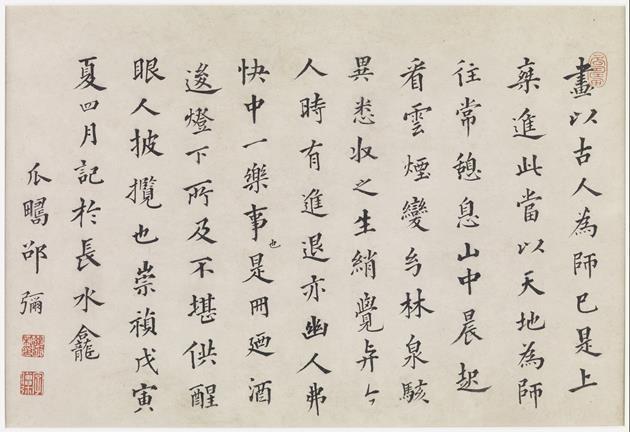 畫以古人為師已是上
椉進此當以天地為師
往常憩息山中晨起
看雲煙變幻林泉駭
異悉収之生綃覺今
人時有進退亦幽人弗
快中一樂事也是冊廼酒
逡燈下所及不堪供醒
眼人披攬也崇禎戊寅
夏四月記於長水龕
瓜疇邵彌